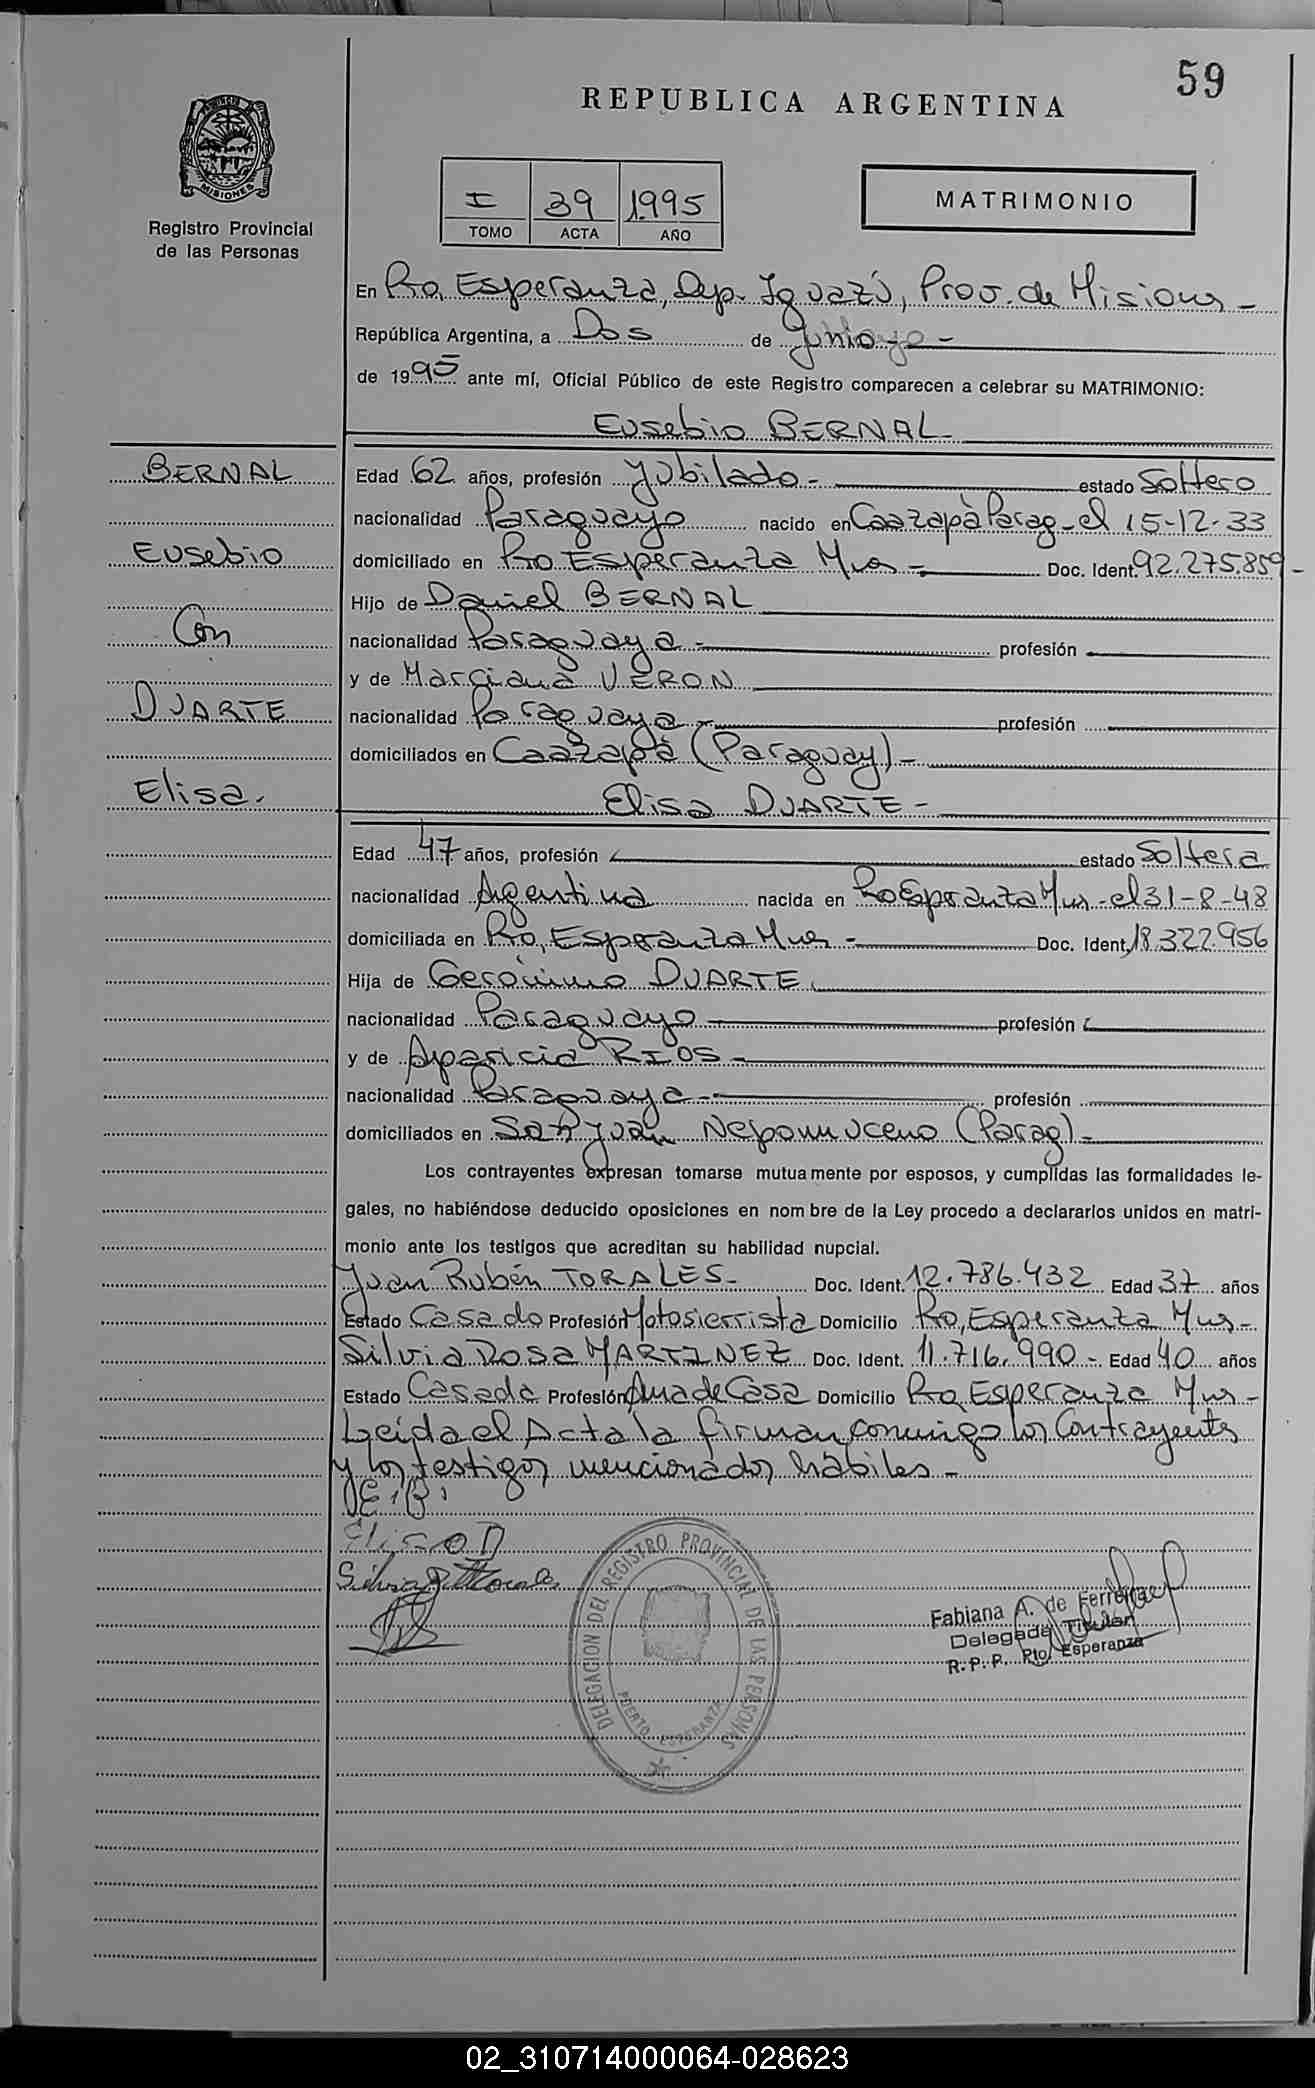 59
REPUBLICA ARGENTINA
MISIONES
Registro Provincial
de las Personas
I 39 1995
TOMO ACTA AÑO
MATRIMONIO
En Pto, Esperanza, Dep. Iguazú, Prov. de Misiones -
República Argentina, a Dos de Junio
de 1995 ante mí, Oficial Público de este Registro comparecen a celebrar su MATRIMONIO:
Eusebio BERNAL
BERNAL
Eusebio
Con
DUARTE
Elisa.
Edad 62 años, profesión Jubilado - estado Soltero
nacionalidad Paraguayo nacido en Caazapà Parag - el 15-12-33
domiciliado en Pto Esperanza Mnes - Doc. Ident. 92.275.859 -
Hijo de Daniel BERNAL
nacionalidad Paraguaya - profesión
y de Marciana VERON
nacionalidad Paraguaya - profesión
domiciliados en Caazapà (Paraguay) -
Elisa DUARTE -
Edad 47 años, profesión estado Soltera
nacionalidad Argentina nacida en Pto Esperanza Mnes - el 31-8-48
domiciliada en Pto, Esperanza Mnes - Doc. Ident. 18.322.956
Hija de Gerónimo DUARTE
nacionalidad Paraguayo profesión
y de Aparicia RIOS -
nacionalidad Paraguaya - profesión
domiciliados en San Juan Nepomuceno (Parag) -
Los contrayentes expresan tomarse mutuamente por esposos, y cumplidas las formalidades le-
gales, no habiéndose deducido oposiciones en nombre de la Ley procedo a declararlos unidos en matri-
monio ante los testigos que acreditan su habilidad nupcial.
Juan Rubén TORALES - Doc. Ident. 12.786.432 Edad 37 años
Estado Casado Profesión Motosierrista Domicilio Pto, Esperanza Mnes -
Silvia Rosa MARTINEZ Doc. Ident. 11.716.990 - Edad 40 años
Estado Casada Profesión Ama de Casa Domicilio Pto. Esperanza Mnes -
Leída el Acta la firman conmigo los Contrayentes
y los testigos mencionados hábiles -
E.B.
Elisa D
Silvia
DELEGACION DEL REGISTRO PROVINCIAL DE LAS PERSONAS
PUERTO ESPERANZA
Fabiana A. de Ferreira
Delegada Titular
R.P.P. Pto. Esperanza
02_310714000064-028623